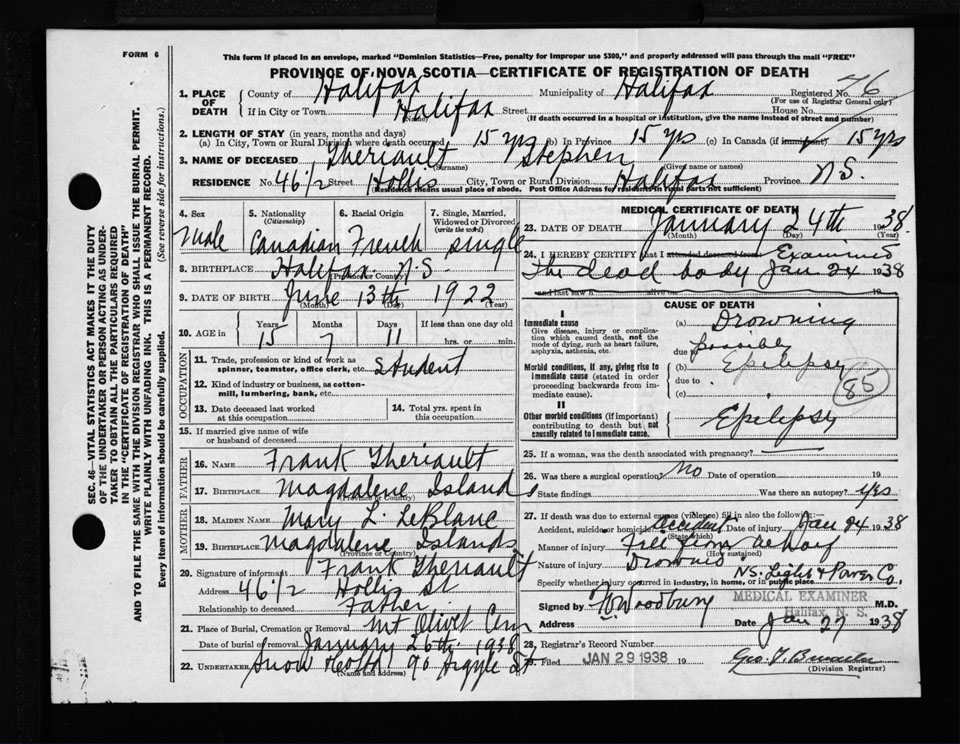 FORM 6
This form if placed in an envelope, marked "Dominion Statistics—Free, penalty for improper use $300," and properly addressed will pass through the mail "FREE"
PROVINCE OF NOVA SCOTIA—CERTIFICATE OF REGISTRATION OF DEATH
SEC. 46—VITAL STATISTICS ACT MAKES IT THE DUTY
OF THE UNDERTAKER OR PERSON ACTING AS UNDER-
TAKER TO OBTAIN ALL THE PARTICULARS REQUIRED
IN THE "CERTIFICATE OF REGISTRATION OF DEATH"
AND TO FILE THE SAME WITH THE DIVISION REGISTRAR WHO SHALL ISSUE THE BURIAL PERMIT.
WRITE PLAINLY WITH UNFADING INK. THIS IS A PERMANENT RECORD.
Every item of information should be carefully supplied. (See reverse side for instructions.)
1. PLACE OF DEATH County of Halifax Municipality of Halifax Registered No. 76
(For use of Registrar General only)
If in City or Town Halifax Street House No.
(Name) (If death occurred in a hospital or institution, give the name instead of street and number)
2. LENGTH OF STAY (in years, months and days)
(a) In City, Town or Rural Division where death occurred 15 yrs (b) In Province 15 yrs (c) In Canada (if immigrant) 15 yrs
3. NAME OF DECEASED Theriault Stephen
(Surname) (Given name or names)
RESIDENCE No. 46 1/2 Street Hollis City, Town or Rural Division Halifax Province N.S.
(Residence means usual place of abode. Post Office Address for residents in rural parts not sufficient)
4. Sex 5. Nationality (Citizenship) 6. Racial Origin 7. Single, Married, Widowed or Divorced (write the word)
Male Canadian French single
8. BIRTHPLACE Halifax N.S.
(Province or Country)
9. DATE OF BIRTH June 13th 1922
(Month) (Day) (Year)
10. AGE in Years Months Days If less than one day old
15 7 11 hrs. or min.
OCCUPATION
11. Trade, profession or kind of work as
spinner, teamster, office clerk, etc. Student
12. Kind of industry or business, as cotton-
mill, lumbering, bank, etc.
13. Date deceased last worked at this occupation 14. Total yrs. spent in this occupation
15. If married give name of wife
or husband of deceased
FATHER
16. NAME Frank Theriault
17. BIRTHPLACE Magdalene Islands
(Province or Country)
MOTHER
18. MAIDEN NAME Mary L. LeBlanc
19. BIRTHPLACE Magdalene Islands
(Province or Country)
20. Signature of informant Frank Theriault
Address 46 1/2 Hollis St
Relationship to deceased Father
21. Place of Burial, Cremation or Removal Mt Olivet Cem
Date of burial or removal January 26th 1938
22. UNDERTAKER Snow 90 Argyle St
(Name and address)
MEDICAL CERTIFICATE OF DEATH
23. DATE OF DEATH January 24th 1938
(Month) (Day) (Year)
24. I HEREBY CERTIFY that I attended deceased from Examined
the dead body Jan 24 1938
and last saw h alive on 19
CAUSE OF DEATH
I
Immediate cause
Give disease, injury or complica-
tion which caused death, not the
mode of dying, such as heart failure,
asphyxia, asthenia, etc.
(a) Drowning
due to possibly
Morbid conditions, if any, giving rise to
immediate cause (stated in order
proceeding backwards from im-
mediate cause).
(b) Epilepsy
due to
(c)
85
II
Other morbid conditions (if important)
contributing to death but not
causally related to immediate cause.
Epilepsy
25. If a woman, was the death associated with pregnancy?
26. Was there a surgical operation? No Date of operation 19
State findings Was there an autopsy? yes
27. If death was due to external causes (violence) fill in also the following:—
Accident, suicide or homicide? Accident Date of injury Jan 24 1938
(State which)
Manner of injury Fell from
(How sustained)
Nature of injury Drowned
Specify whether injury occurred in industry, in home, or in public place N.S. Light & Power Co.
Signed by Woodbury M.D.
MEDICAL EXAMINER
Halifax, N. S.
Address Date Jan 27 1938
28. Registrar's Record Number
Filed JAN 29 1938 19
(Division Registrar)